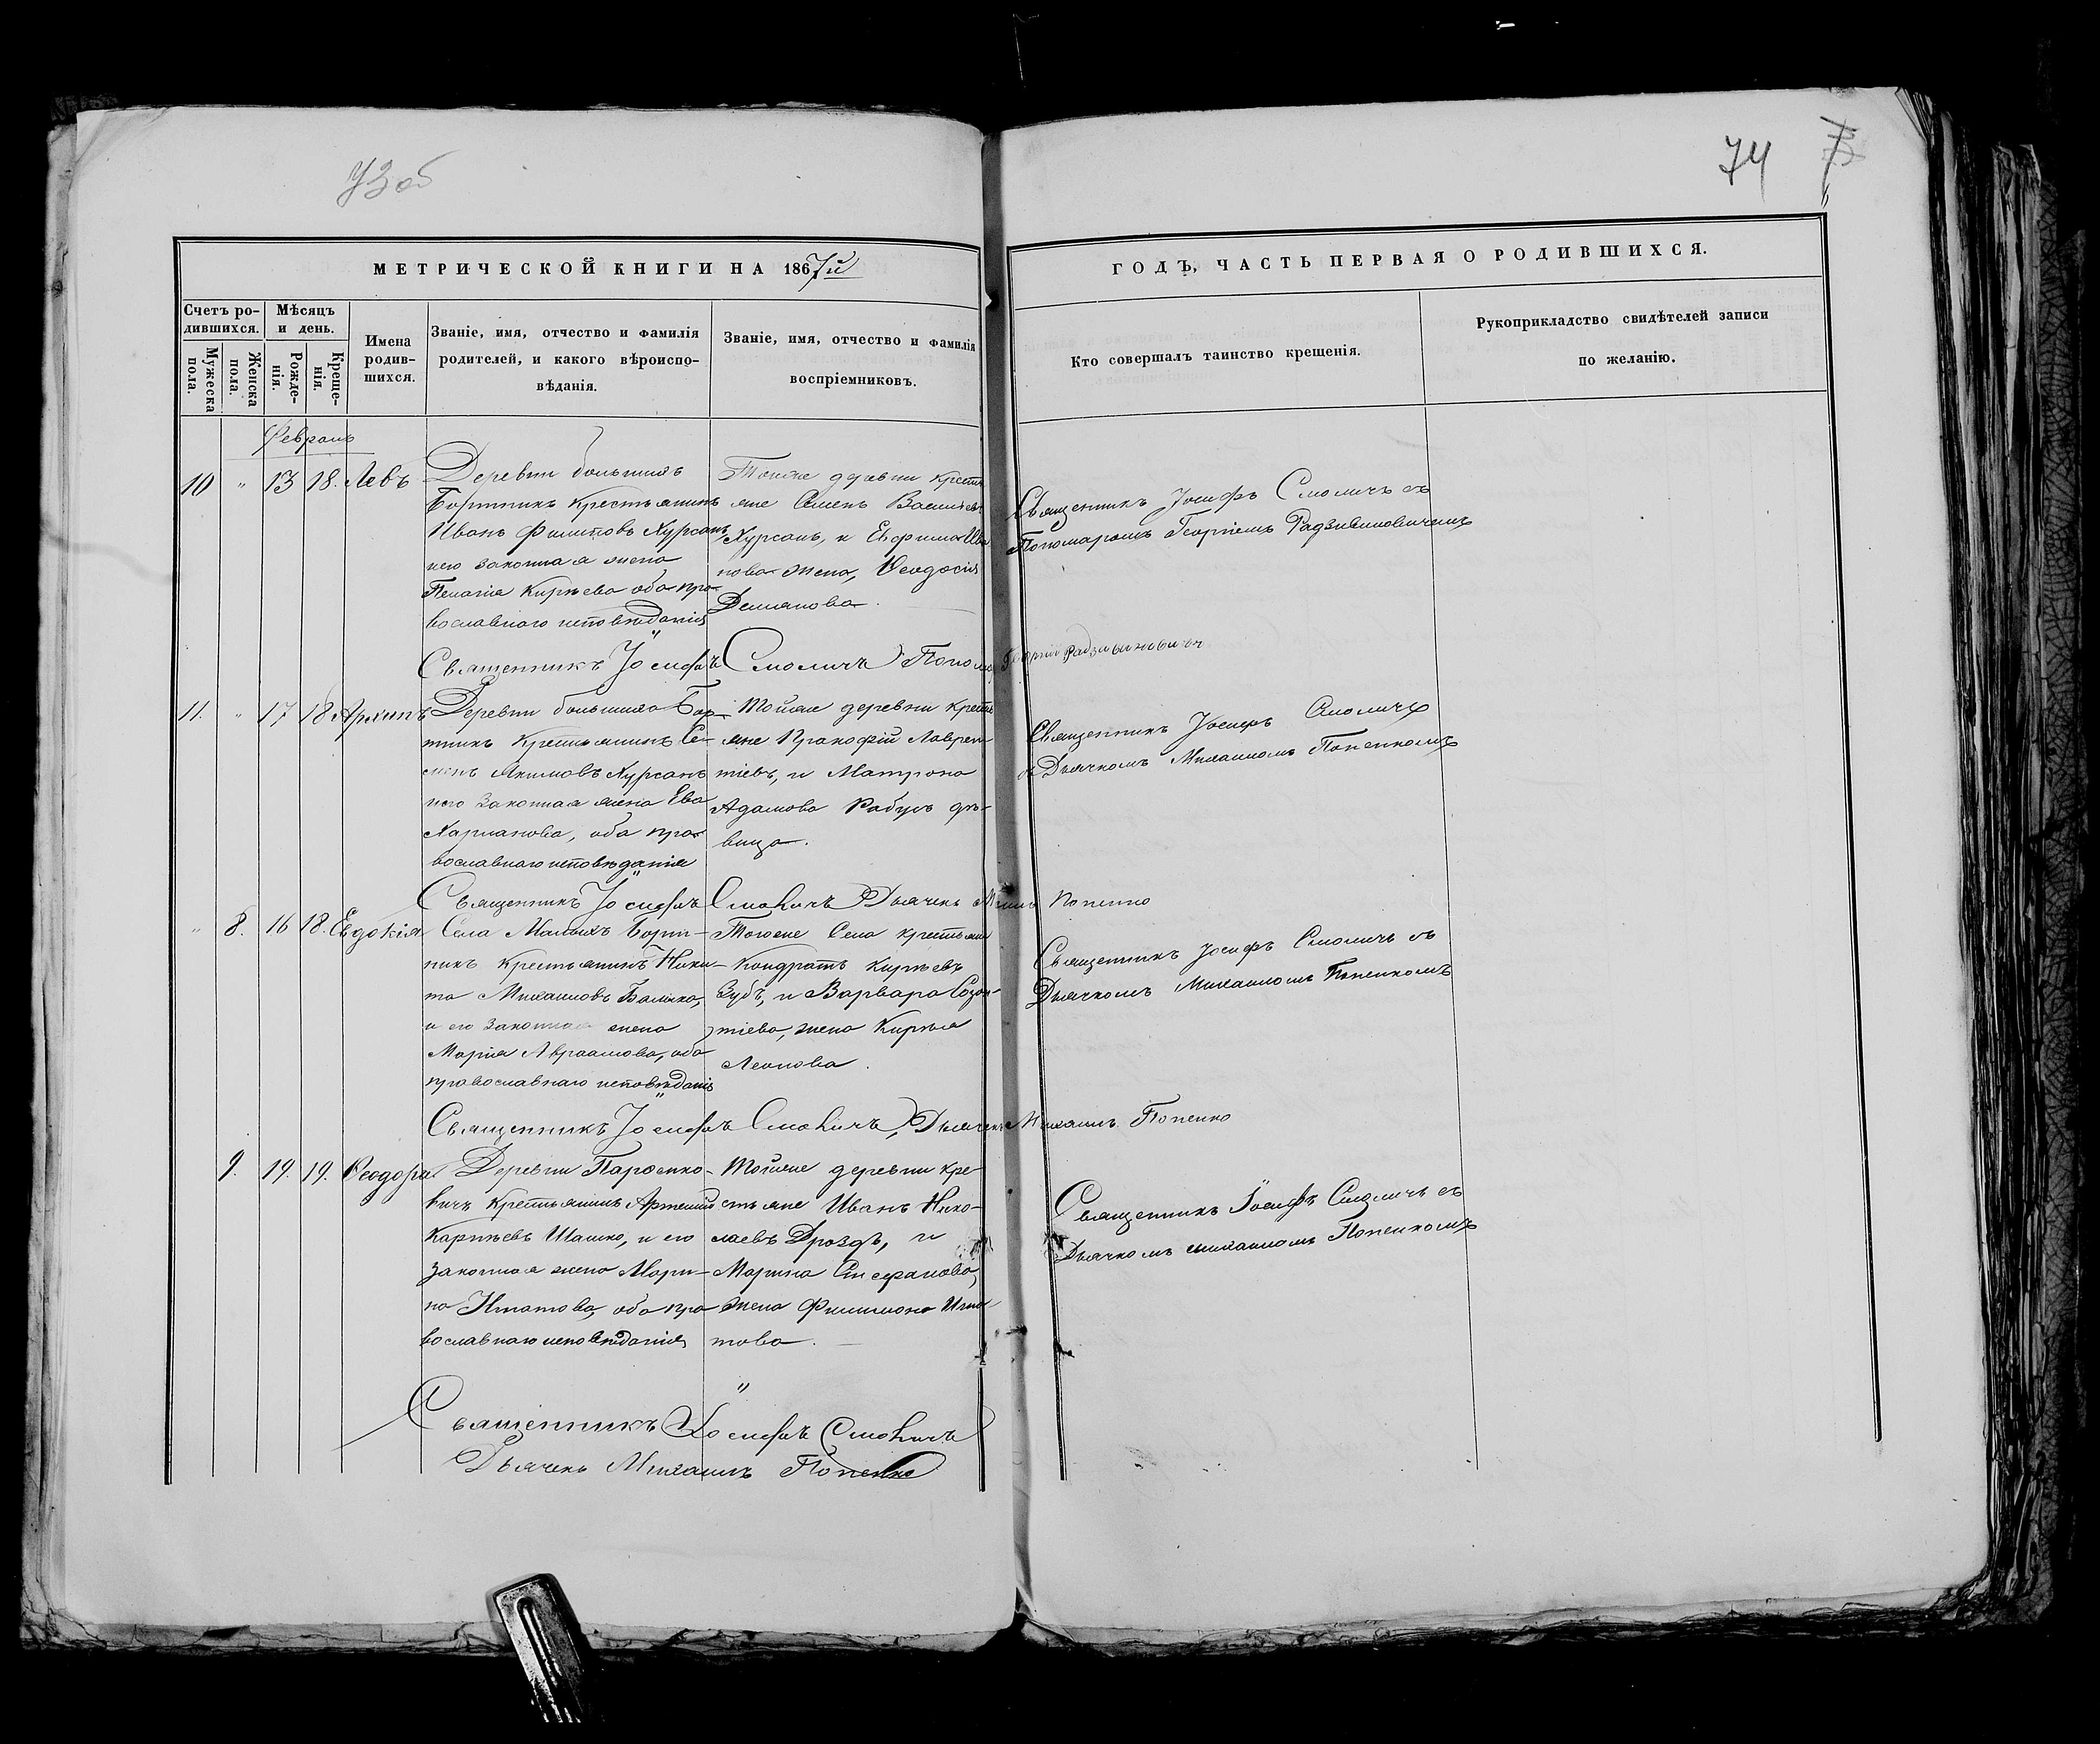 73 об
74
МЕТРИЧЕСКОЙ КНИГИ НА 1867й
ГОДЪ, ЧАСТЬ ПЕРВАЯ О РОДИВШИХСЯ.
Счетъ ро-
дившихся.
Мужеска пола.
Женска пола.
Мѣсяцъ
и день.
Рожде-
нія.
Креще-
нія.
Имена
родив-
шихся.
Званіе, имя, отчество и фамилія
родителей, и какого вѣроиспо-
вѣданія.
Званіе, имя, отчество и фамилія
воспріемниковъ.
Кто совершалъ таинство крещенія.
Рукоприкладство свидѣтелей записи
по желанію.
Февраль
10 " 13 18. Левъ
Деревни большихъ
Бортникъ крестьянинъ
Иванъ Филиповъ Хурсанъ
иего законная жена
Пелагія Кирѣева оба пра-
вославнаго исповѣданія
Тойже деревни крестья
яне Семенъ Васильевъ
Хурсанъ, и Евфима Ива
нова жена, Ѳеодосія
Демянова.
Священникъ Іосифъ Смоличъ съ
Пономаромъ Георгіемъ Радзивиновичемъ
Священникъ Іосифъ Смоличъ Поном Георгій Радзивиновичъ
11. " 17 18 Архипъ
Деревни большихъ Бор-
тникъ крестьянинъ Се-
менъ Якимовъ Хурсанъ
иего законная жена Ева
Харланова, оба пра-
вославнаго исповѣданія
Тойже деревни кресть
яне Прокофій Лаврен
тіевъ, и Матрона
Адамова Рабуь дѣ-
вица.
Священникъ Іосифъ Смоличъ
съ Дьячкомъ Михаиломъ Попенкомъ
Священникъ Іосифъ Смоличъ Дьячекъ Михаи Попенко
" 8. 16 18. Евдокія
Села Малыхъ Борт-
никъ крестьянинъ Ники-
та Михаиловъ Балыко,
и его законная жена
Марія Авраамова, оба
православнаго исповѣданія
Тогоже Села крестьяни
Кондратъ Кирѣевъ
Зубъ, и Варвара Созон-
тіева, жена Кирѣя
Леонова.
Священникъ Іосифъ Смоличъ съ
Дьячкомъ Михаиломъ Попенкомъ
Священникъ Іосифъ Смоличъ, Дьячекъ Михаилъ Попенко
9. 19. 19. Ѳеодора
Деревни Пархимко-
вичъ крестьянинъ Артемій
Карпѣевъ Шашко, и его
законная жена Мари-
на Игнатова, оба пра
вославнаго исповѣданія
Тойже деревни кре-
стьяне Иванъ Нико-
лаевъ Дроздъ, и
Марина Стефанова,
жена Филимона Игна
това.
Священникъ Іосифъ Смоличъ съ
Дьячкомъ михаиломъ Попенкомъ
Священникъ Іосифъ Смоличъ
Дьячекъ Михаилъ Попенко